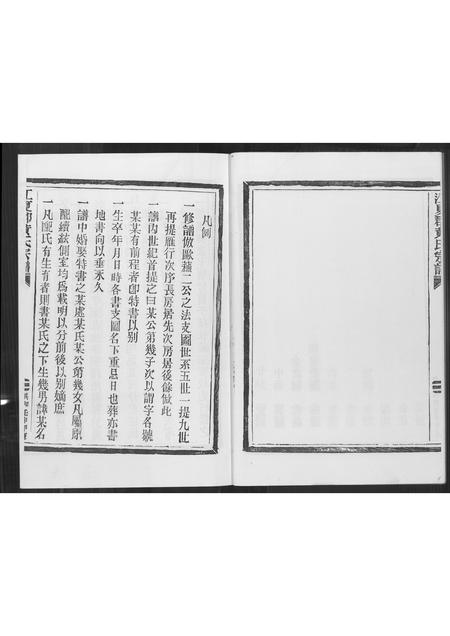 江夏郡黃氏宗譜
凡例
一修譜倣歐蘇二公之法支圖世系五世一提九世
再提雁行次序長房居先次房居後餘倣此
一譜內世紀首提之曰某公第幾子次以諱字名號
某某有前程者卽特書以別
一生卒年月日時各書支圖名下重忌日也葬亦書
地書向以垂永久
一譜中婚娶特書之某處某氏某公第幾女凡屬原
配續絃側室均爲載明以分前後以別嫡庶
一凡配氏有生育者則書某氏之下生幾男諱某名
江夏郡黃氏宗譜